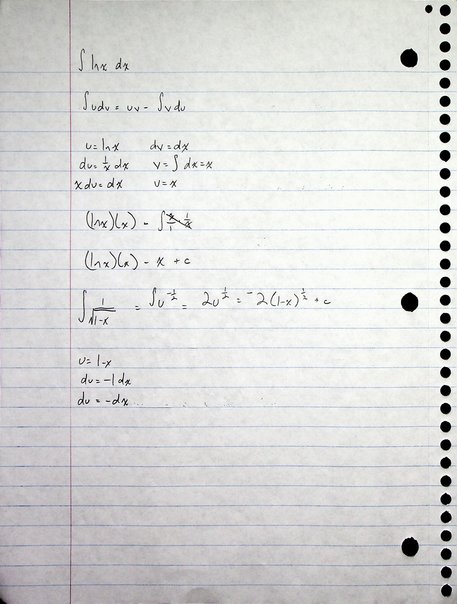 ∫ lnx dx
∫udv = uv - ∫vdu
u = lnx dv = dx
du = 1/x dx v = ∫ dx = x
x du = dx v = x
(lnx)(x) - ∫ x/1 1/x
(lnx)(x) - x + c
∫ 1/√(1-x) = ∫u^(-1/2) = 2u^(1/2) = -2(1-x)^(1/2) + c
u = 1-x
du = -1 dx
du = -dx